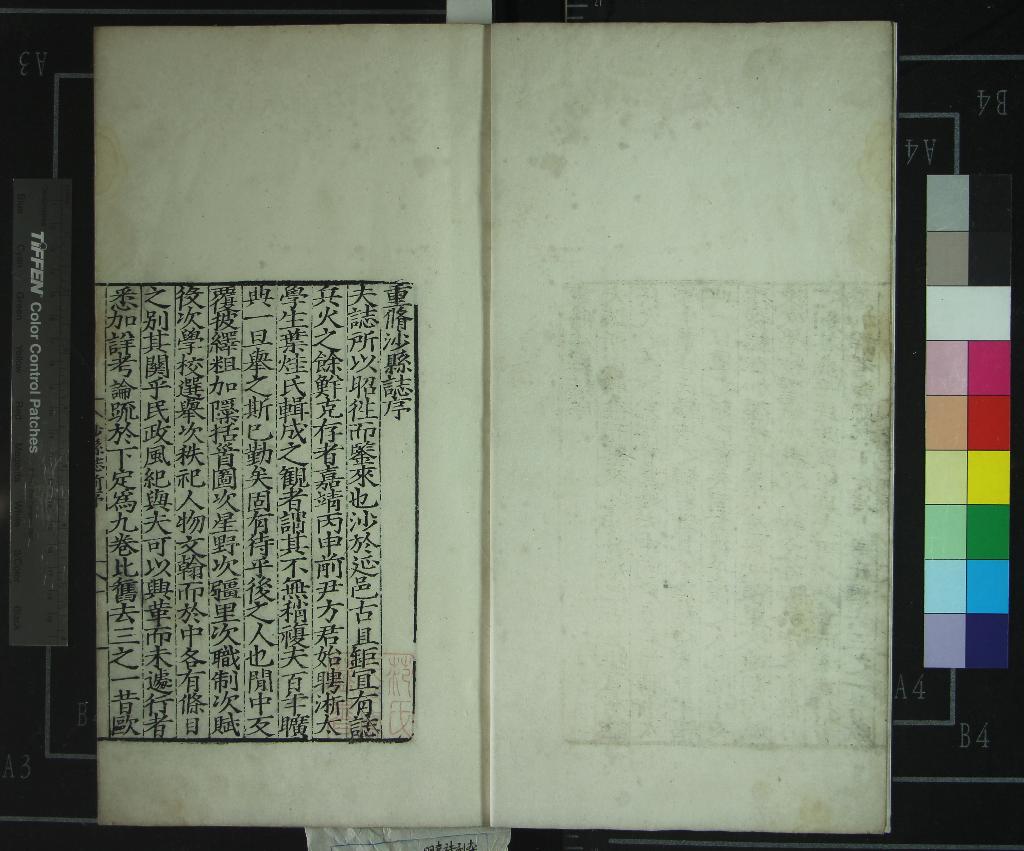 重脩沙縣誌序
夫誌所以昭徃而鑒來也沙於延邑古且鉅宜有誌
兵火之餘鮮克存者嘉靖丙申前尹方君始聘浙太
學生葉烓氏輯成之觀者謂其不無稍複夫百年曠
典一旦舉之斯已勤矣固有待乎後之人也閒中反
覆披繹粗加隱括首圖次星野次疆里次職制次賦
後次學校選舉次秩祀人物文翰而於中各有條目
之別其關乎民政風紀與夫可以興革而未遽行者
悉加詳考論疏於下定為九卷比舊去三之一昔歐
沙縣誌前序
A3
B4
A4
TIFFEN Color Control Patches
Blue
Cyan
Green
Yellow
Red
Magenta
White
3/Color
Black
A4
B4
A3